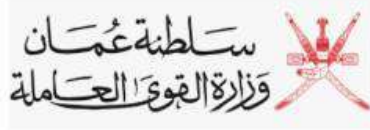 سلطنة عُمان
وَزارة القوىٰ العاملة